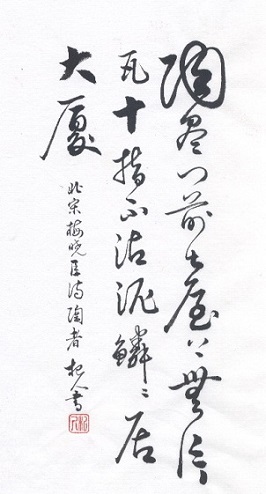 陶尽门前土屋上無片
瓦十指不沾泥鳞〻居
大厦
北宋梅晓臣诗陶者 杞人書